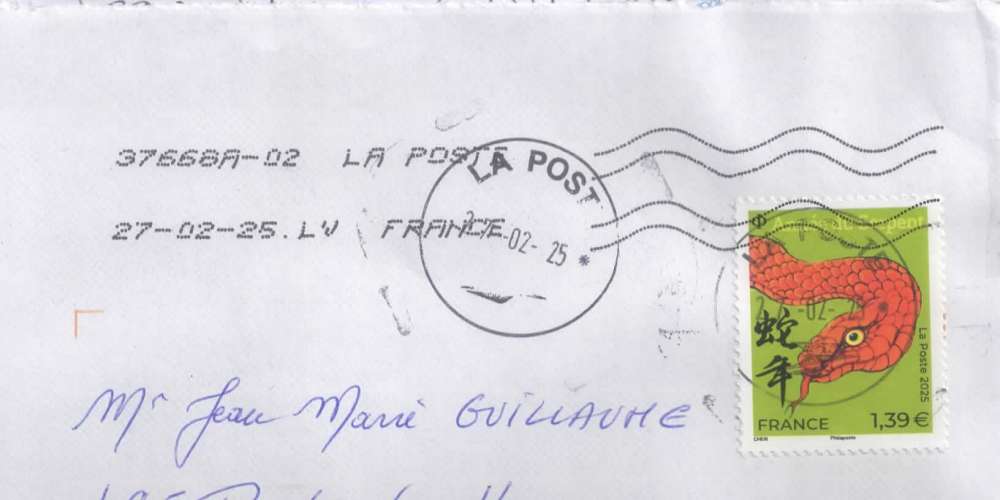 37668A-02 LA POSTE
27-02-25.LV FRANCE
LA POST
-02- 25 *
Année du Serpent
-02- 25
蛇
年
La Poste 2025
FRANCE 1,39 €
CHEN Philaposte
Mr Jean Marie GUILLAUME